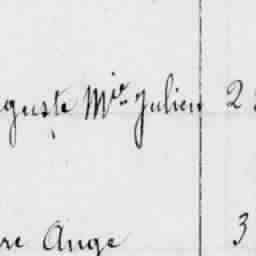 guste Mie Julien 2
re Ange 3